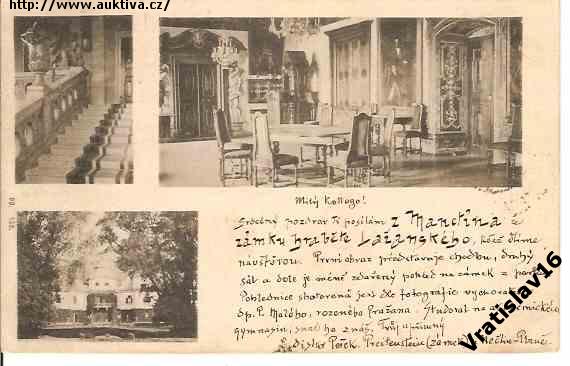 http://www.auktiva.cz/
Milý Kollego!
Srdečný pozdrav Ti posílám z Manětína z
zámku hraběte Lažanského, kde dlíme
návštěvou. První obraz představuje chodbu, druhý
sál a dole je méně zdařený pohled na zámek z
Pohlednice zhotovená jest dle fotografie
dp. P. Malého, rozeného Pražana. Studoval na
gymnasiu, snad ho znáš. Tvůj upřímný
Ladislav Pešek. Preitenstein (zámek)
Vratislav16